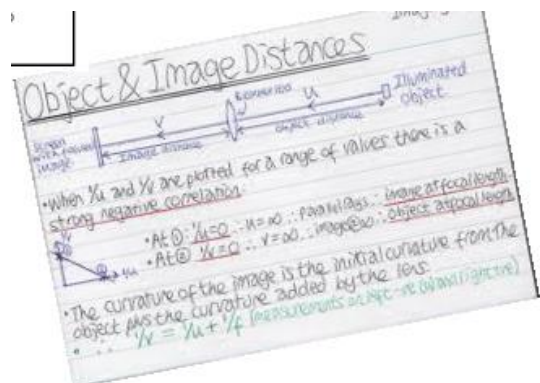 Object & Image Distances
Illuminated
object
v
u
Image distance
object distance
image
•When 1/u and 1/v are plotted for a range of values there is a
strong negative correlation.
•At ① 1/u=0 ∴ u=∞ ∴ parallel rays ∴ image at focal length
•At ② 1/v=0 ∴ v=∞ ∴ image@∞ ∴ object at focal length
1/v
1/u
•The curvature of the image is the initial curvature from the
object plus the curvature added by the lens.
• ∴ 1/v = 1/u + 1/f (measurements on left -ve